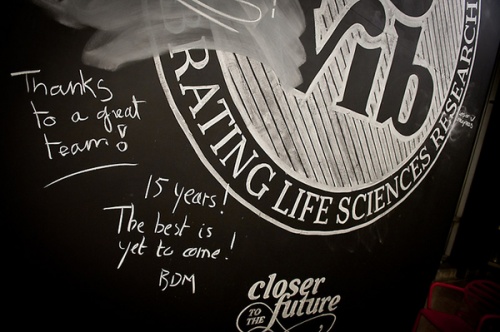 Thanks
to a great
team!
Vib
RATING LIFE SCIENCES RESEARCH
15 years!
The best is
yet to come!
BDM
closer
TO THE
future